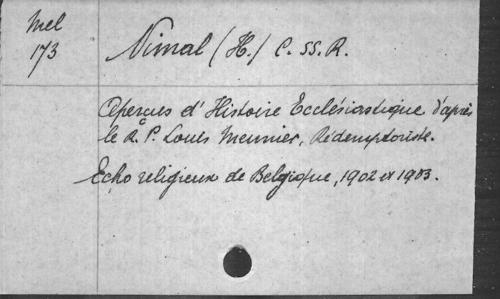 Mel
173
Nimal (H.) C.SS.R.
Aperçus d'Histoire Ecclésiastique d'après
le R. P. Louis Meunier, Rédemptoriste.
Echo religieux de Belgique, 1902 et 1903.